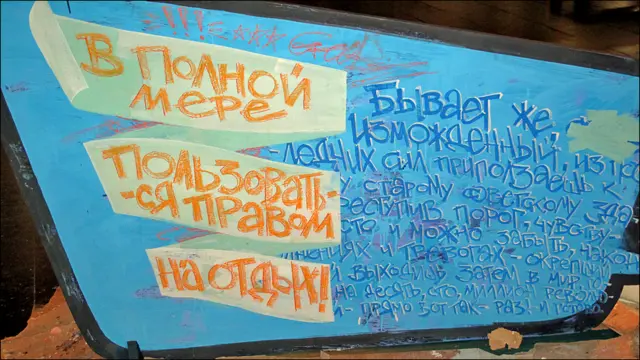 В Полной
мере
Пользовать-
-ся правом
на отдых!
Бывает же,
изможденный, из по
-ледних сил приползаешь к
у старому советскому зда
рестипив порог, чувств
это и можно забыть, наход
мнениях и тревогах - охрапний
й выходив затем в мир,
на десять, сто, миллион револю
- прямо вот так - раз! и готово